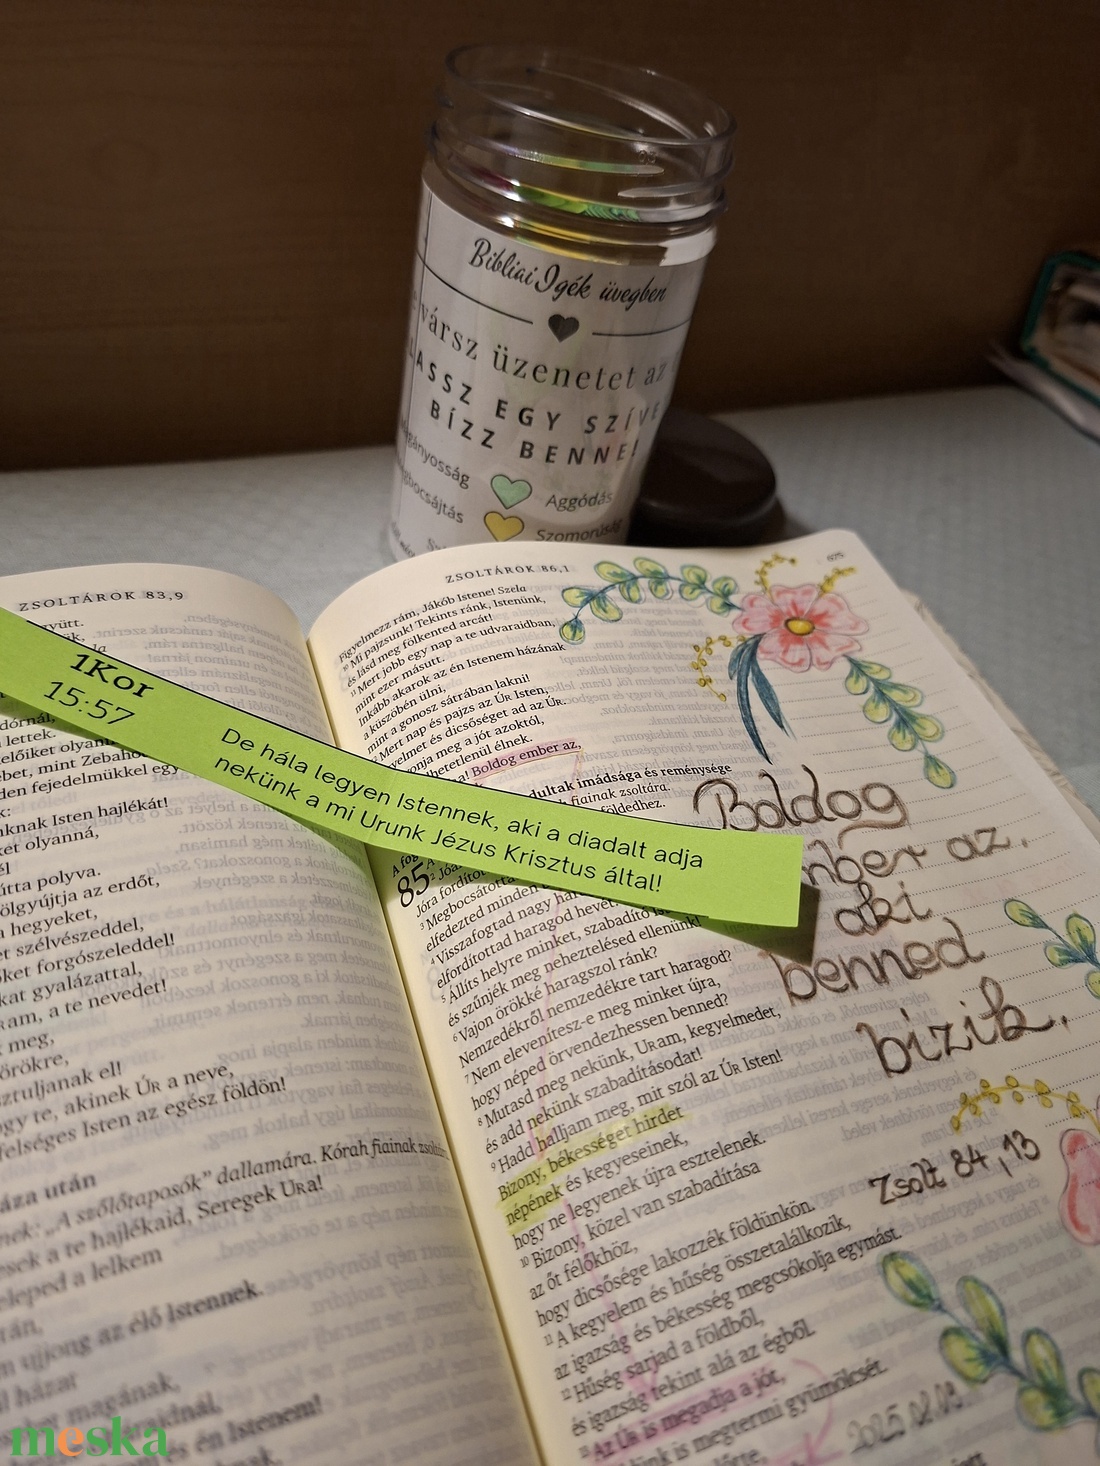 Bibliai Igék üvegben
vársz üzenetet az
ASSZ EGY SZÍVE
BÍZZ BENNE!
Aggódás
Szomorúság
ZSOLTÁROK 83,9
ZSOLTÁROK 86,1
575
1Kor
15:57
De hála legyen Istennek, aki a diadalt adja
nekünk a mi Urunk Jézus Krisztus által!
dórnál,
lettek.
előiket olyan
bet, mint Zebah
den fejedelmükkel egy
nknak Isten hajlékát!
ket olyanná,
él
útta polyva.
ölgyújtja az erdőt,
a hegyeket,
et szélvészeddel,
őket forgószeleddel!
kat gyalázattal,
ram, a te nevedet!
meg,
örökre,
sztuljanak el!
ogy te, akinek ÚR a neve,
felséges Isten az egész földön!
áza után
nek: „A szőlőtaposók” dallamára. Kórah fiainak zsolt
esek a te hajlékaid, Seregek URa!
eleped a lelkem
tán,
m ujjong az élő Istennek.
ál házat
magának,
s én Istenem!
Figyelmezz rám, Jákób Istene! Szela
10 Mi pajzsunk! Tekints ránk, Istenünk,
és lásd meg fölkented arcát!
11 Mert jobb egy nap a te udvaraidban,
mint ezer másutt.
Inkább akarok az én Istenem házának
a küszöbén ülni,
mint a gonosz sátrában lakni!
12 Mert nap és pajzs az ÚR Isten,
yelmet és dicsőséget ad az ÚR.
onja meg a jót azoktól,
hetetlenül élnek.
a! Boldog ember az,
dultak imádsága és reménysége
fiainak zsoltára.
földedhez.
85
Jóra fordítot
3 Megbocsátotta
elfedezted minden
4 Visszafogtad nagy har
elfordítottad haragod hevét.
5 Állíts helyre minket, szabadító Is
és szűnjék meg neheztelésed ellenünk!
6 Vajon örökké haragszol ránk?
Nemzedékről nemzedékre tart haragod?
7 Nem elevenítesz-e meg minket újra,
hogy néped örvendezhessen benned?
8 Mutasd meg nekünk, URam, kegyelmedet,
és add nekünk szabadításodat!
9 Hadd halljam meg, mit szól az ÚR Isten!
Bizony, békességet hirdet
népének és kegyeseinek,
hogy ne legyenek újra esztelenek.
10 Bizony, közel van szabadítása
az őt félőkhöz,
hogy dicsősége lakozzék földünkön.
11 A kegyelem és hűség összetalálkozik,
az igazság és békesség megcsókolja egymást.
12 Hűség sarjad a földből,
és igazság tekint alá az égből.
13 Az ÚR is megadja a jót,
is megtermi gyümölcsét.
Boldog
mber az,
aki
benned
bízik.
Zsolt 84,13
meska